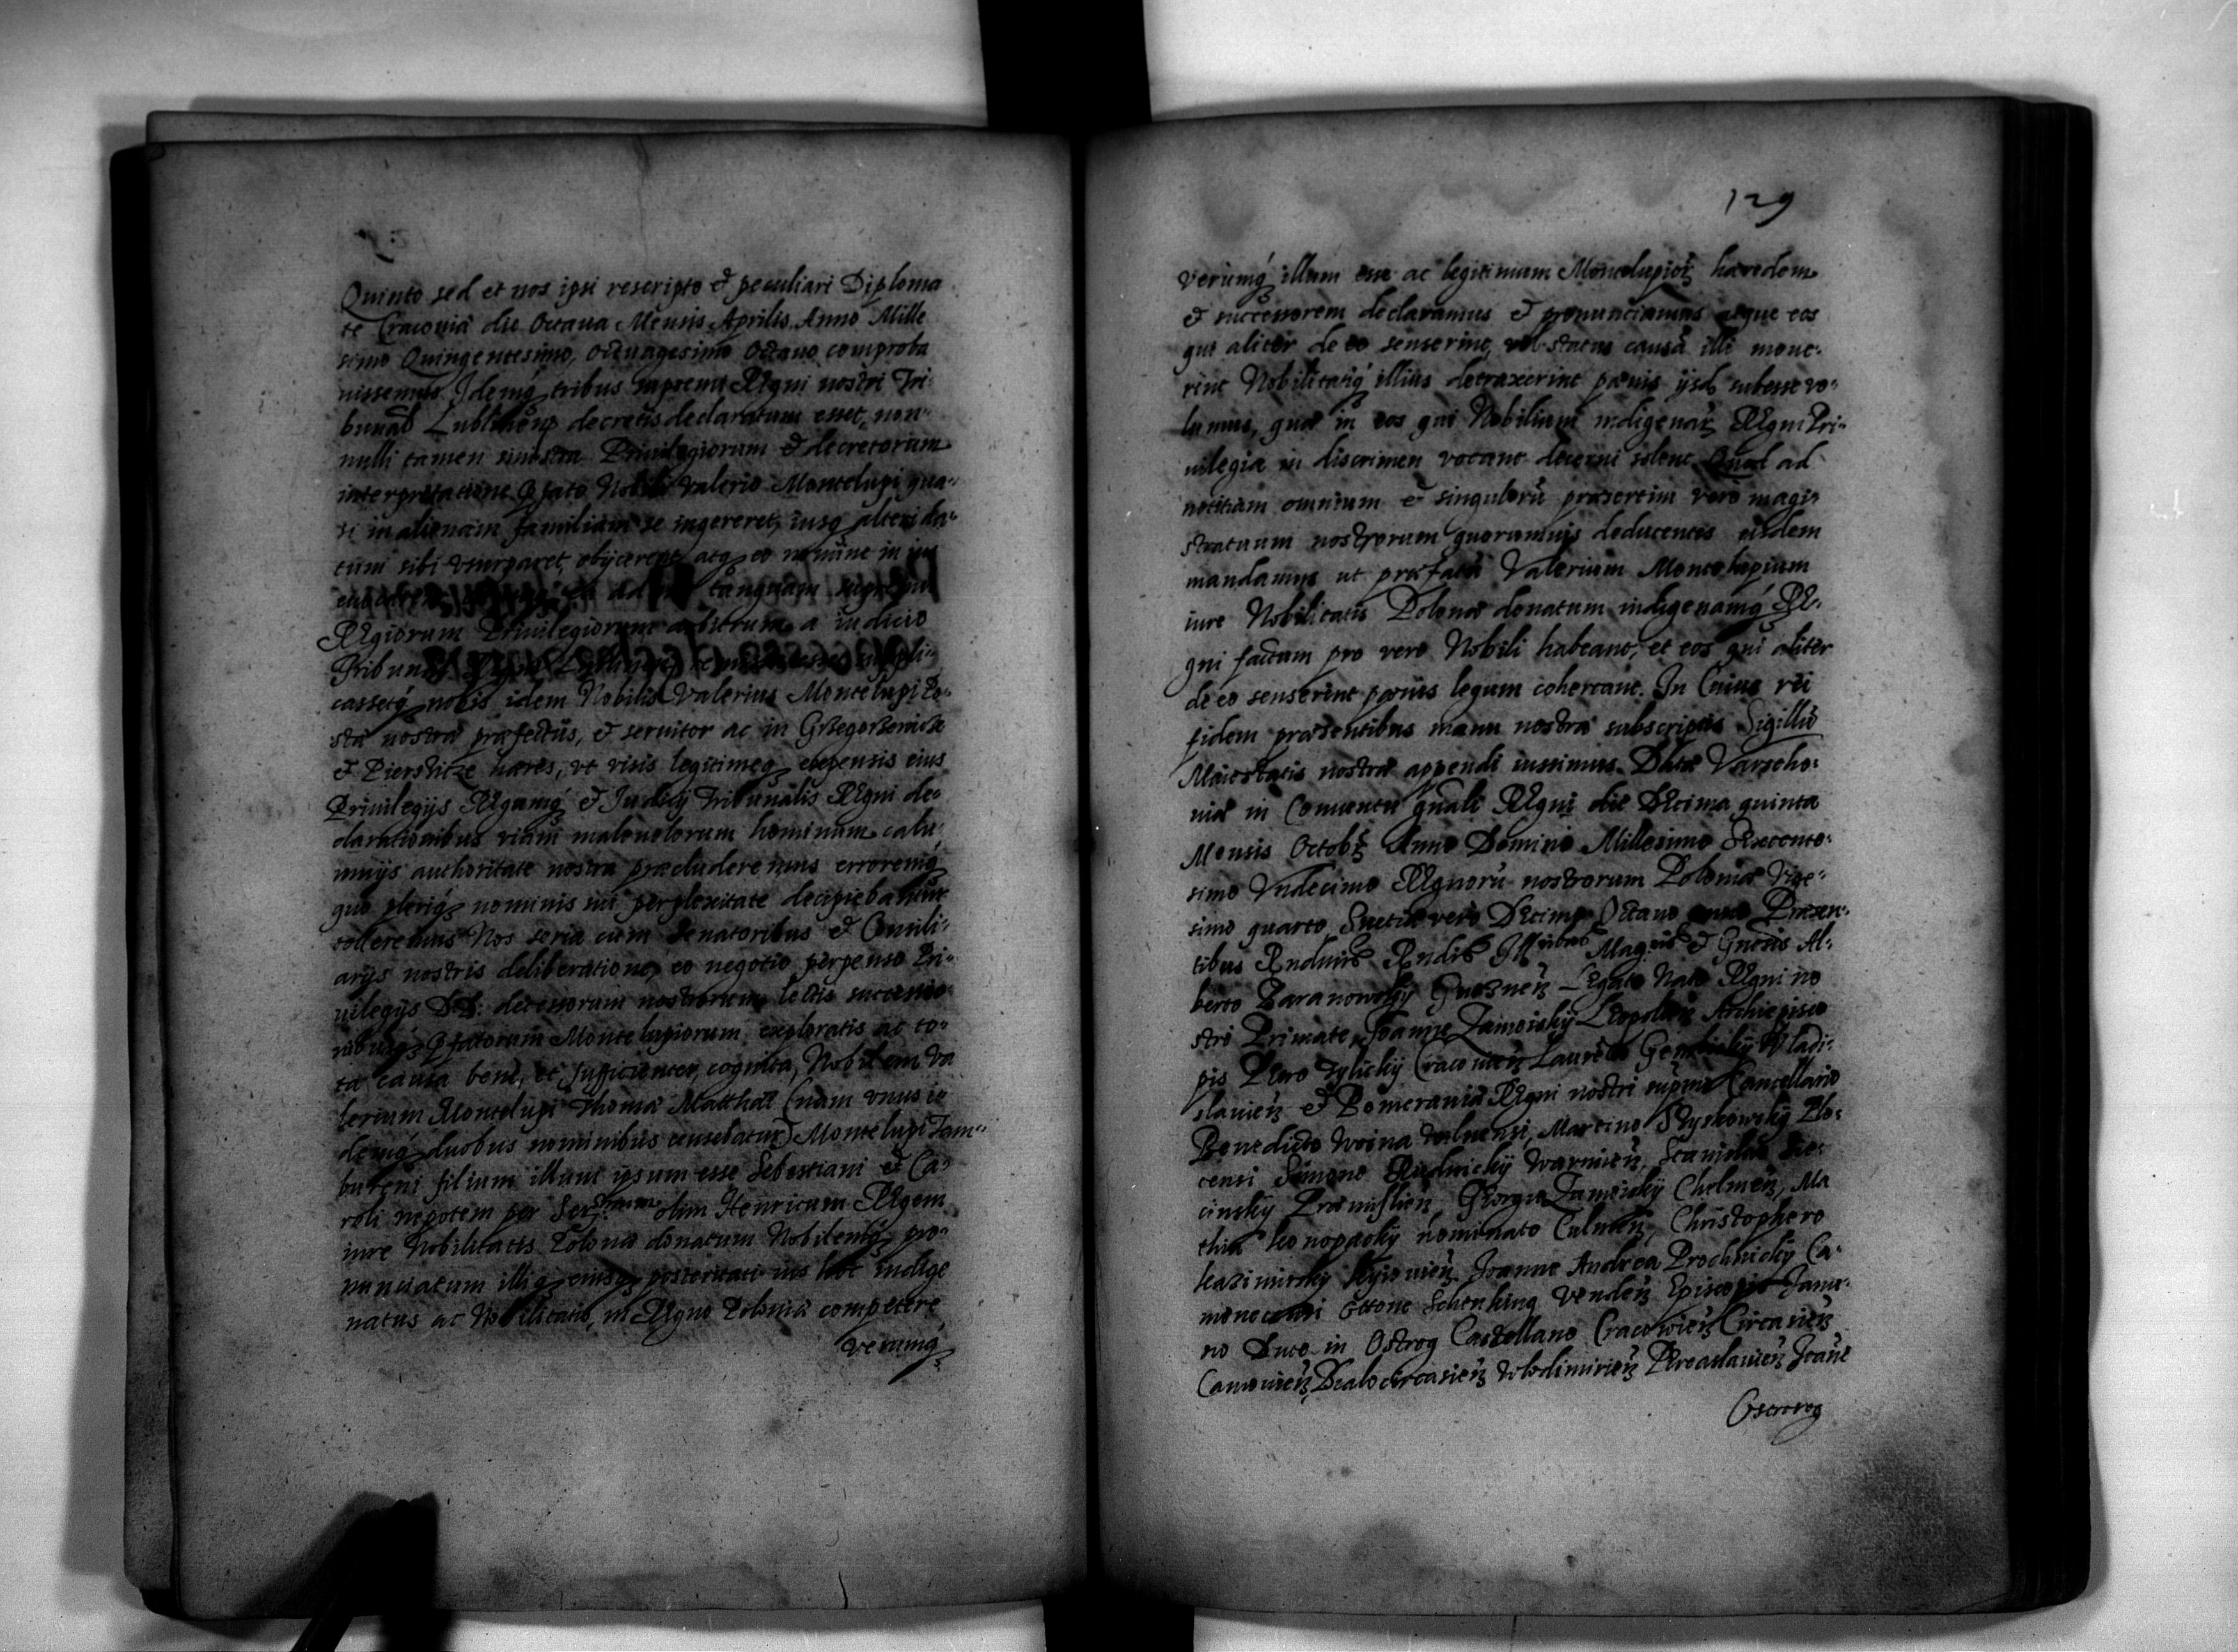 Quinto sed et nos ipsi rescripto et peculiari Diploma
te Cracouiæ die Octaua Mensis Aprilis Anno Mille
simo Quingentesimo, Octuagesimo Octauo comproba
uissemus Idemq́ tribus supremi Regni nostri Tri-
bunal decretis declaratum esset, non-
nulli tamen sinistra Priuilegiorum et decretorum
interpretatione Valerio Montelupi qua-
si in alienam familiam se ingereret, iusq alteri da-
tum sibi vsurparet obijcerent atq eo nomine in ius
tanquam
Regiorum Priuilegiorum arbitrum a iudicio
cassetq nobis idem Nobilis Valerius Montelupi Po-
stæ nostræ præfectus, et seruitor ac in
et hæres, vt visis legitimeq expensis eius
Priuilegijs Regumq́ et Iudicij Tribunalis Regni de-
clarationibus viam maleuolorum hominum calu-
mnijs authoritate nostra præcluderemus erroremq́
quo pleriq nominis sui perplexitate decipiebantur
tolleremus Nos seria cum Senatoribus et Consili-
arijs nostris deliberatione, eo negotio perpenso Pri-
uilegijs DD: decessorum nostrorum lectis successio-
nibusq Montelupiorum exploratis ac to-
ta causa bene, et sufficienter cognita, Nobilem Va
lerium Montelupi Thomæ Matthæi (nam vnus i-
demq duobus nominibus censebatur) Montelupi Tam-
bureni filium illum ipsum esse Sebestiani et Ca-
roli nepotem per olim Henricum Regem
iure Nobilitatis Poloniæ donatum Nobilemq́ pro-
nunciatum illiq eiusq posteritati ius hoc indige
natus ac Nobilitatis, in Regno Poloniæ competere
verumq́
129
verumq́ illum esse ac legitimum Montelupior hæredem
et successorem declaramus et pronunciamus atque eos
qui aliter de eo senserint, vel status causã illi moue-
rint Nobilitatiq́ illius detraxerint pœnis ijsd subesse vo-
lumus, quæ in eos qui Nobilium indigenar Regni Pri-
uilegia in discrimen vocant decerni solent Quod ad
notitiam omnium et singulorũ præsertim vero magi-
stratuum nostrorum quorumuis deducentes eisdem
mandamus ut præfatũ Valerium Montelupium
iure Nobilitatis Polonæ donatum indigenamq́ Re-
gni factum pro vero Nobili habeant, et eos qui aliter
de eo senserint pœnis legum coherceant. In Cuius rei
fidem præsentibus manu nostra subscriptis Sigillũ
Maiestatis nostræ appendi iussimus. Datæ Varscho-
uiæ in Conuentu gnali Regni die Decima quinta
Mensis Octob Anno Domini Millesimo Sexcente-
simo Vndecimo Regnorũ nostrorum Poloniæ Vige-
simo quarto, Suetiæ vero Decimo Octauo anno Præsen-
tibus Al-
berto Baranowsky Gnesnen Legato Nato Regni no
stri Primate, Joanne Zamoisky Leopolien Archiepisco
pis Petro Tylicky Cracouien Laurẽtio Gembicky Vladi-
slauien et Pomeraniæ Regni nostri Cancellario
Benedicto Woina Vilnensi, Martino Szyskowsky Plo-
censi Simone Rudnicky Warmien, Stanislao Sie-
cinsky Premislien, Georgio Zamoisky Chelmen, Ma
thia Konopacky nominato Culmen, Christophero
Kazimirsky Kijouien Joanne Andrea Prochnicky Ca-
menecensi Ottone Schenking Venden Episcopis Janu-
sio Duce in Ostrog Castellano Cracouien Circasien
Canouien, Bialocircasien Wlodimirien Pereaslauien Joane
Ostrorog